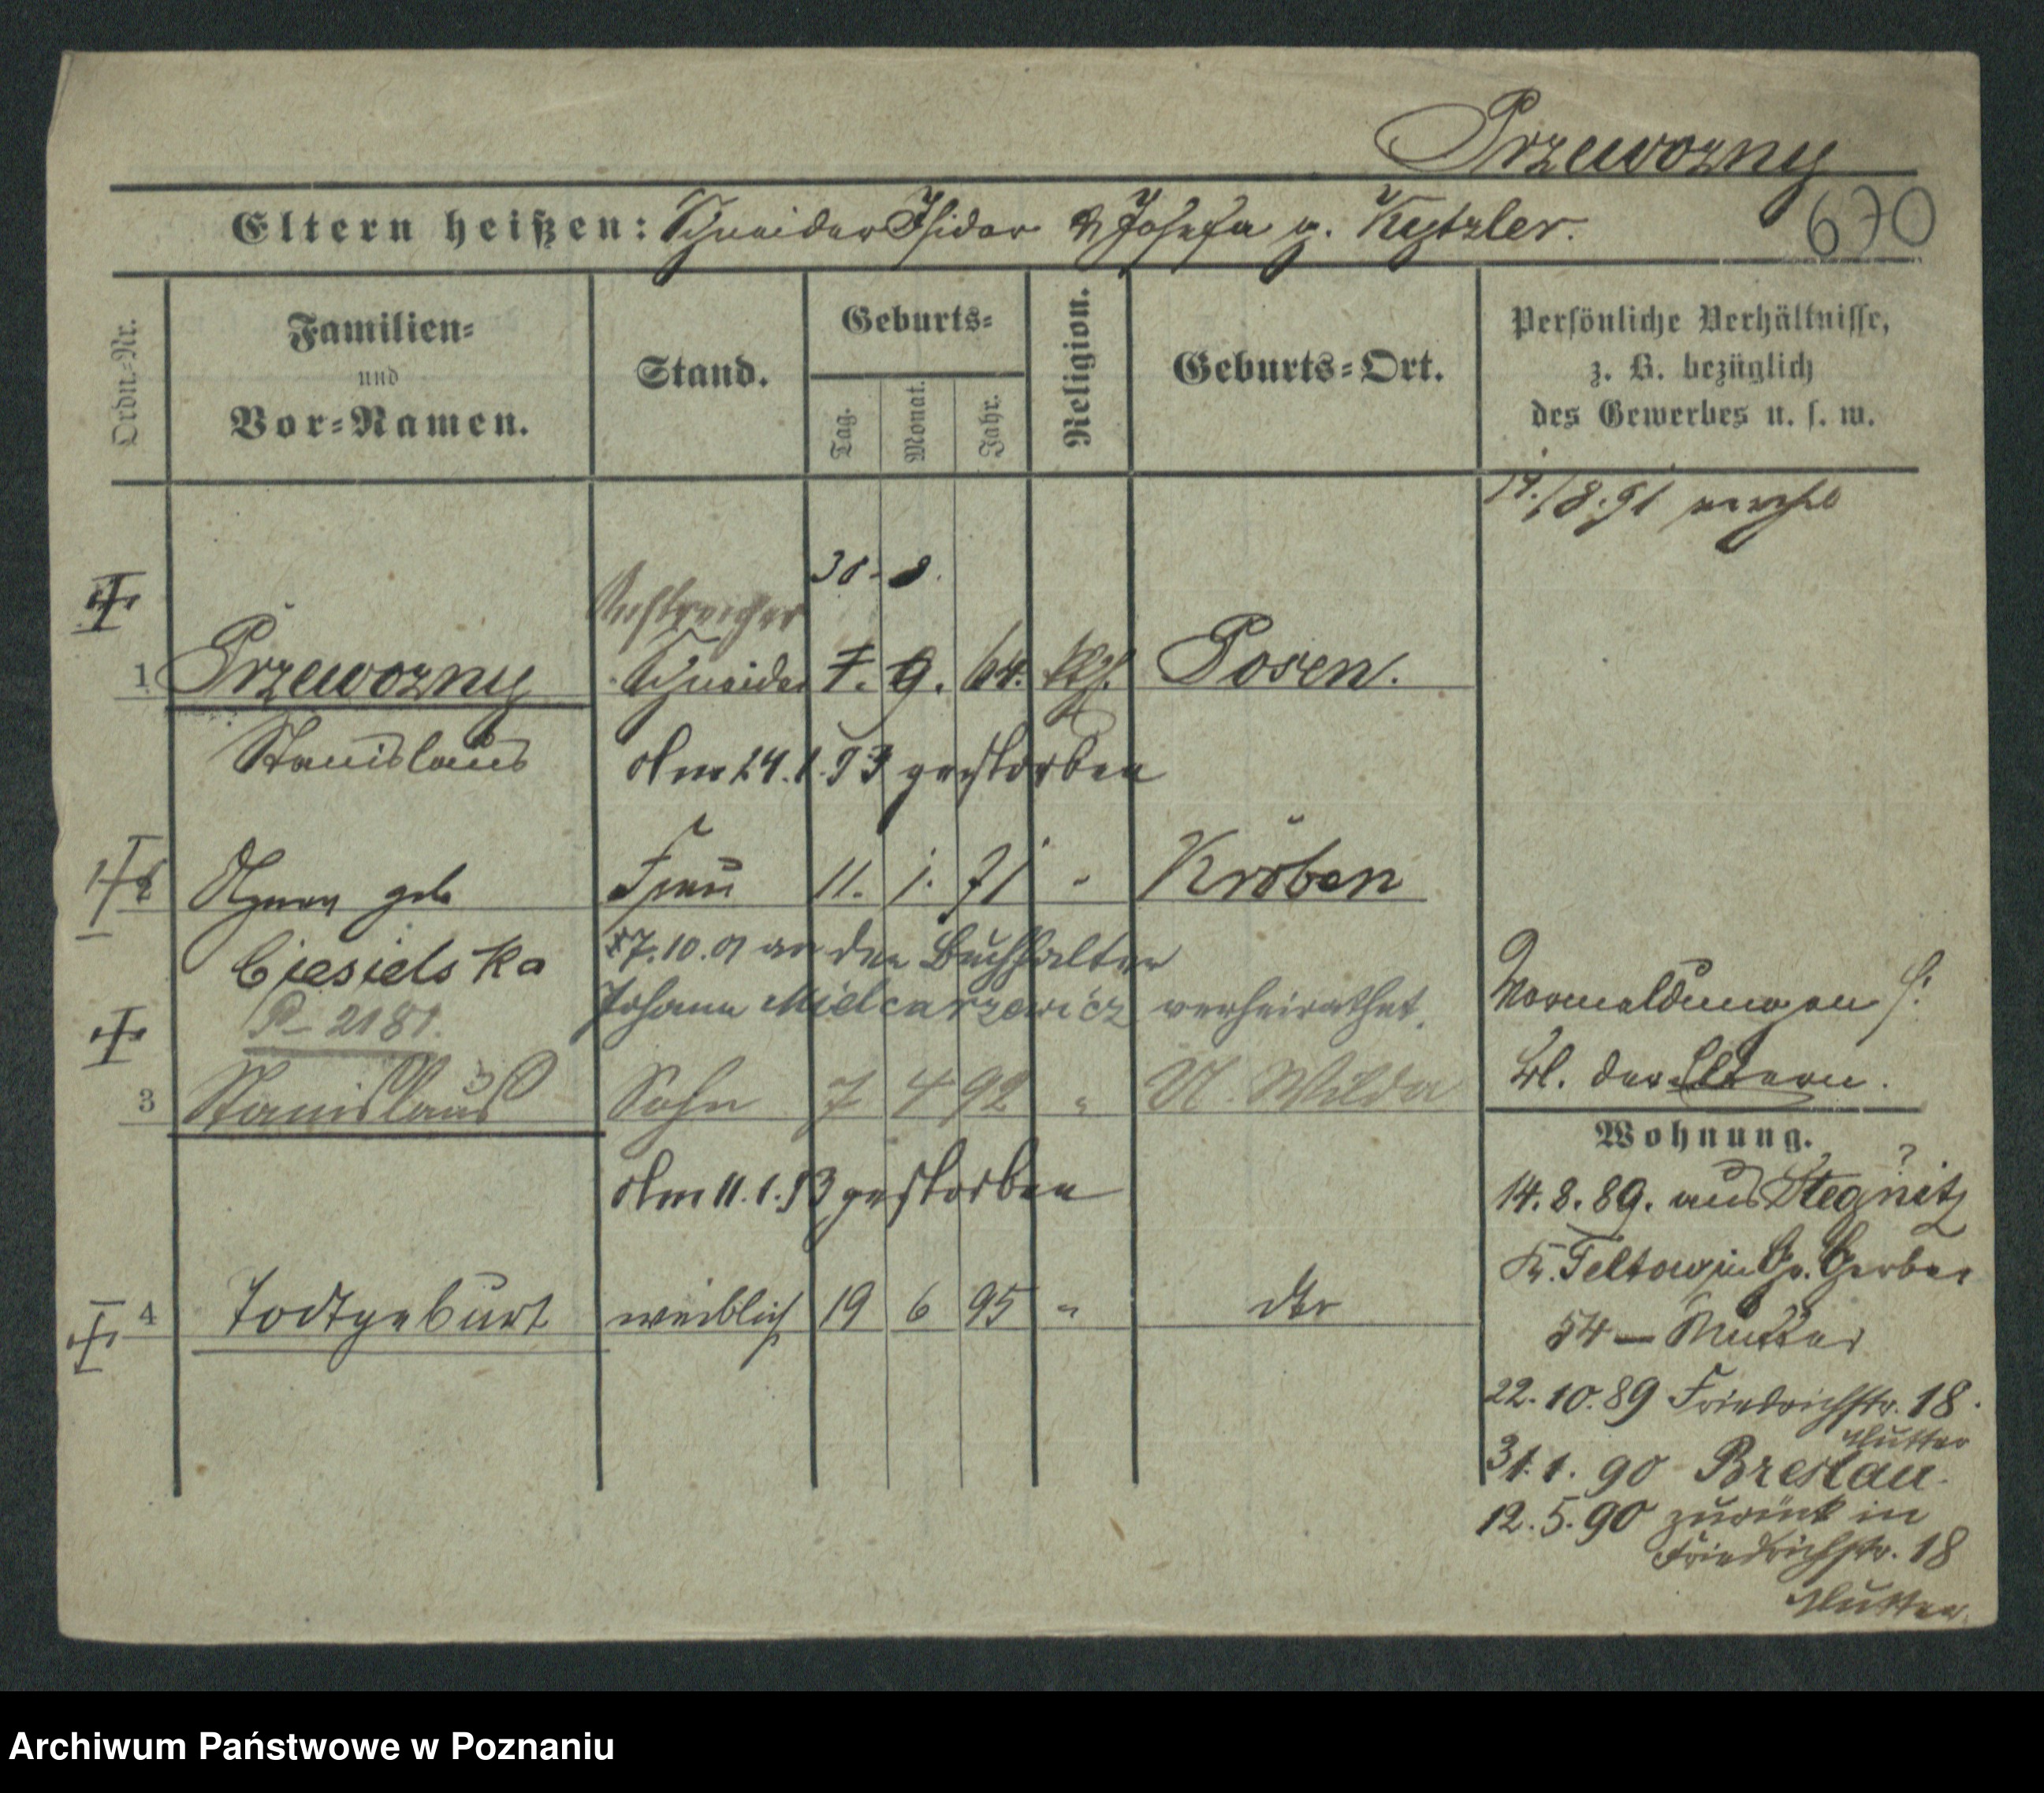 Przewozny
670
Eltern heißen: Schneider Isidor & Josefa g. Kytzler.
Ordn.-Nr.
Familien-
und
Vor-Namen.
Stand.
Geburts-
Tag.
Monat.
Jahr.
Religion.
Geburts-Ort.
Persönliche Verhältnisse,
z. B. bezüglich
des Gewerbes u. s. w.
14./8. 91
30. 8.
Anstreicher
1 Przewozny Schneider 7. 9. 64. kth. Posen.
Stanislaus Am 24. 1. 93 gestorben
2 Agnes geb Frau 11. 1. 71 " Kröben
Ciesielska 27. 10. 01 an den Buchhalter
P 2181. Johann Mielcarzewicz verheirathet.
3 Stanislaus Sohn 7 4 92 " U. Wilda
Am 11. 1. 93 gestorben
4 Todtgeburt weiblich 19 6 95 "
Vormeldungen s.
Bl. der Eltern.
Wohnung.
14. 8. 89. aus
Gr. Gerber
54 — Mutter
22. 10. 89 Friedrichstr. 18.
Mutter
31. 1. 90 Breslau.
12. 5. 90 zurück in
Friedrichstr. 18
Mutter
Archiwum Państwowe w Poznaniu